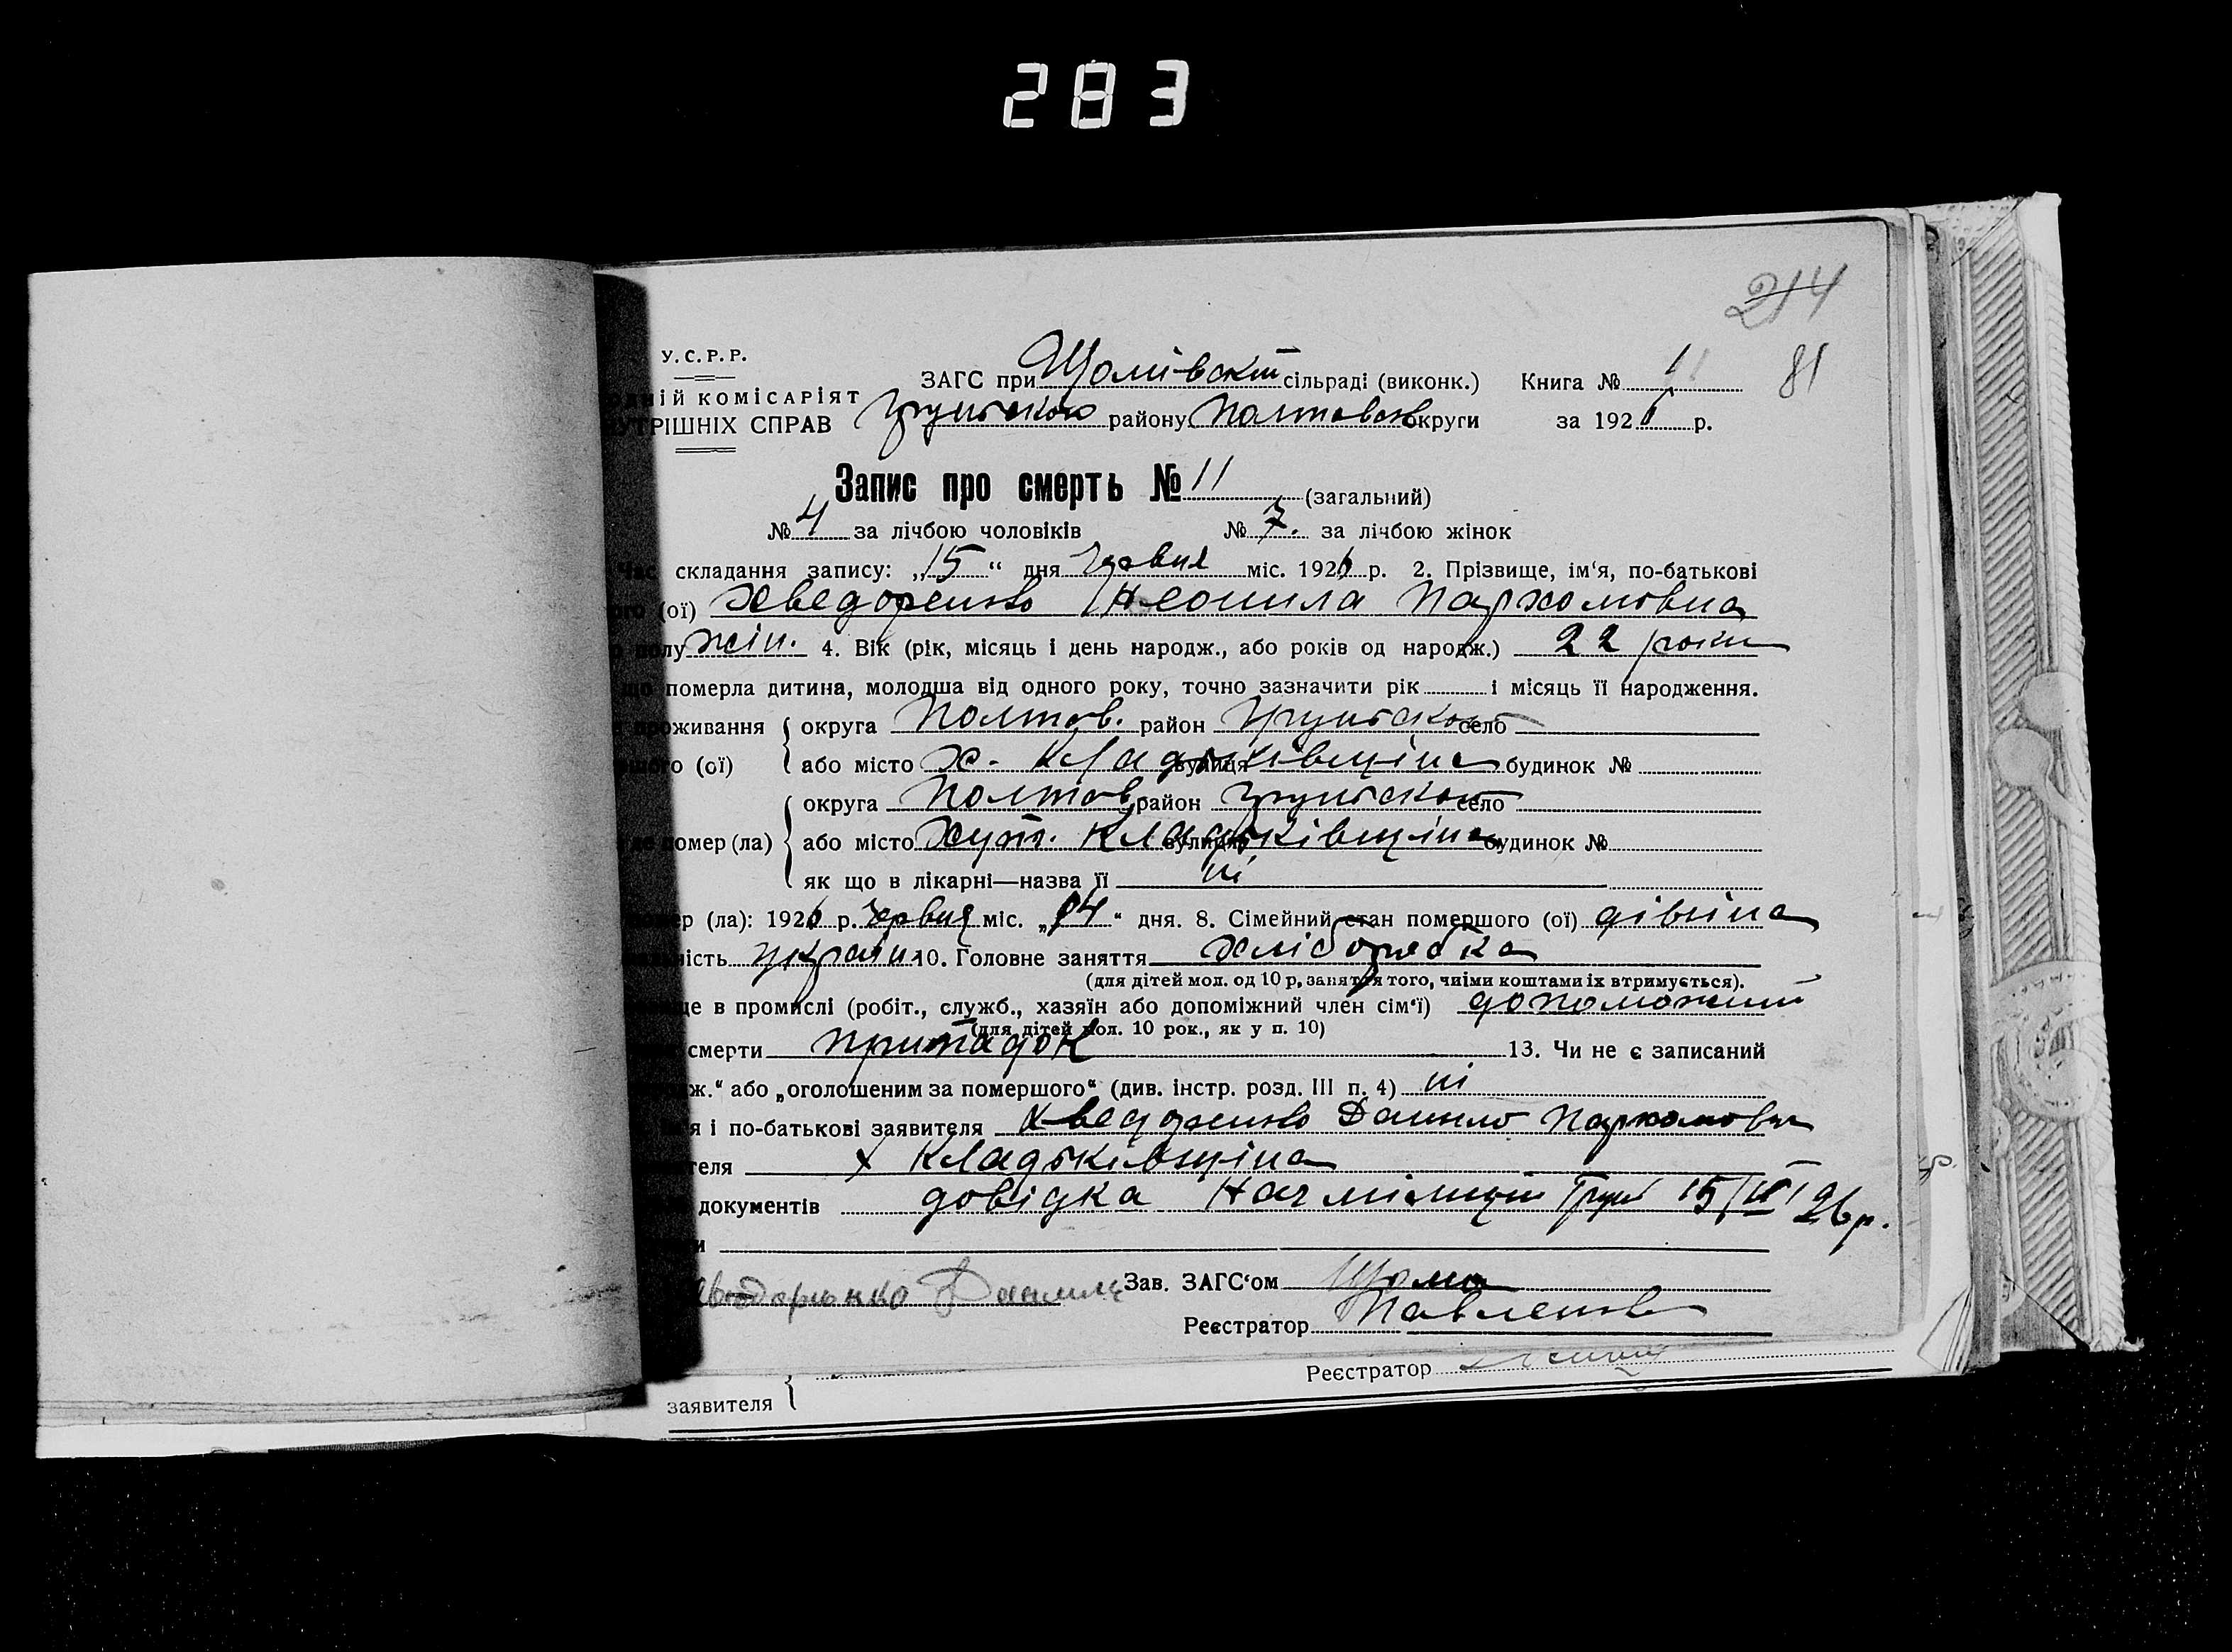 283
214
81
У.С.Р.Р.
ЗАГС при Щомівскій сільраді (виконк.) Книга № 1
ДНІЙ КОМІСАРІЯТ
УТРІШНІХ СПРАВ Грунського району Полтавск округи за 1926 р.
Запис про смерть № 11 (загальний)
№ 4 за лічбою чоловіків № 7. за лічбою жінок
Час складання запису: „15“ дня червня міс. 1926 р. 2. Прізвище, ім‘я, по-батькові
ого (ої) Хведоренко Неонила Пархомовна
полу жін. 4. Вік (рік, місяць і день народж., або років од народж.) 22 роки
що померла дитина, молодша від одного року, точно зазначити рік і місяць її народження.
проживання округа Полтав. район Грунсько село
ршого (ої) або місто х. Кладьківщина вулиця будинок №
округа Полтав. район Грунсько село
де помер (ла) або місто Хут. Кладьківщина вулиця будинок №
як що в лікарні—назва її ні
помер (ла): 1926 р. червня міс. „14“ дня. 8. Сімейний стан помершого (ої) дівчина
ність україн. 10. Головне заняття хліборобка
(для дітей мол. од 10 р, заняття того, чиїми коштами їх втримується).
ще в промислі (робіт., служб., хазяїн або допоміжний член сім‘ї) допоможний
(для дітей мол. 10 рок., як у п. 10)
смерти припадок 13. Чи не є записаний
ж.“ або „оголошеним за помершого“ (див. інстр. розд. III п. 4) ні
я і по-батькові заявителя Хведоренко Данило Пархомович
теля х Кладьківщина
документів довідка Нач міліції Грун 15/VI 26 р.
и
Хведоренко Данило Зав. ЗАГС‘ом Щома
Реєстратор Павленко
Реєстратор
заявителя